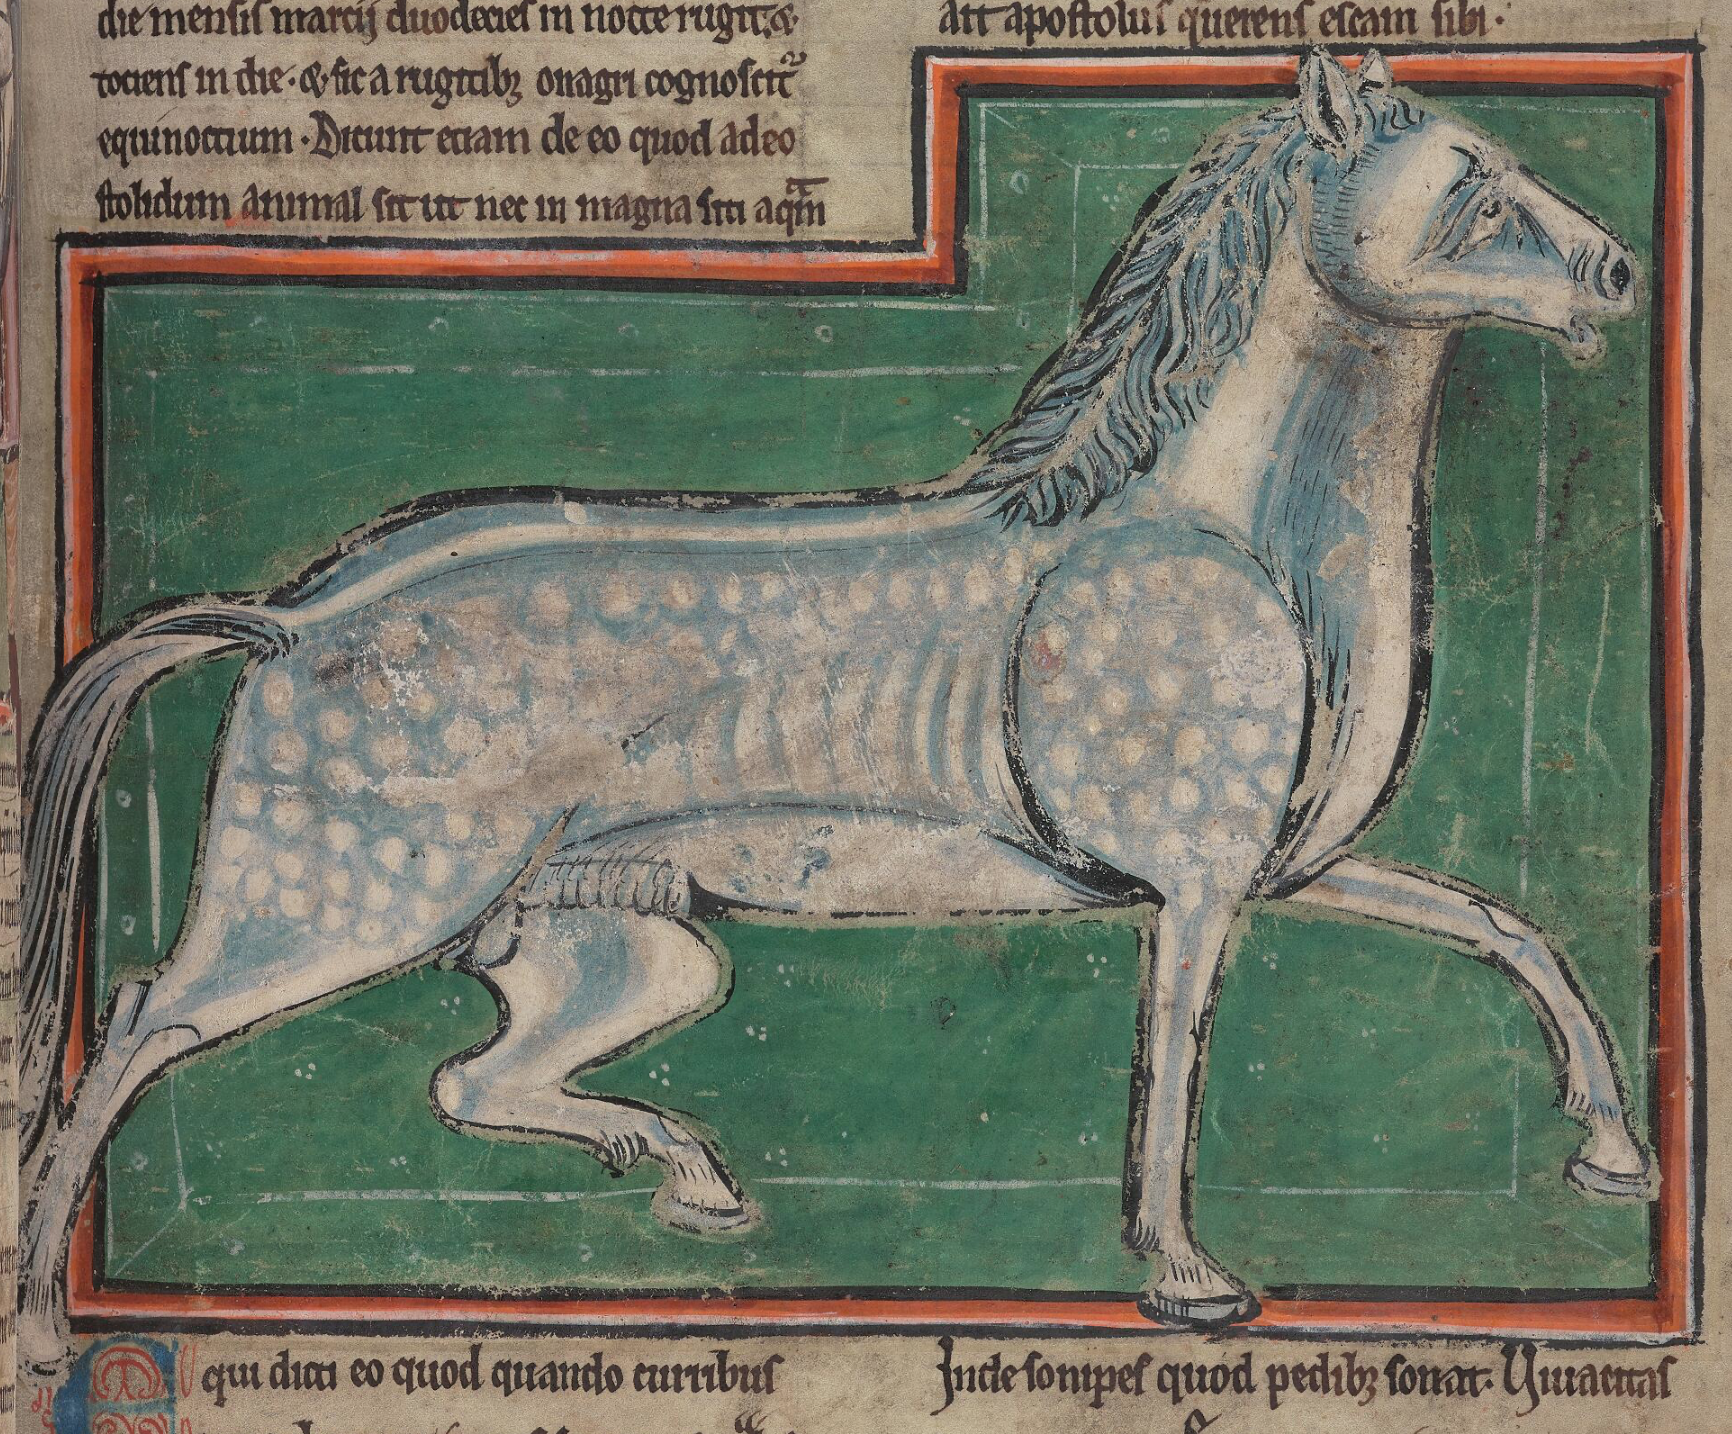 die mensis marcij duodecies in nocte rugit. &
tociens in die. & sic a rugitibꝫ onagri cognoscit᷑
equinoctium. Dicunt etiam de eo quod adeo
stolidum animal sit ut nec in magna siti aqm̄
ait apostolus querens escam sibi.
qui dicti eo quod quando curribus
Inde sonipes quod pedibꝫ sonat. Uiuacitas